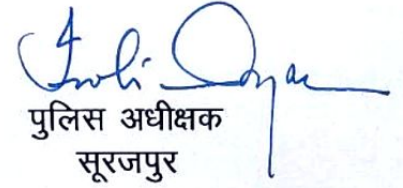 पुलिस अधीक्षक
सूरजपुर